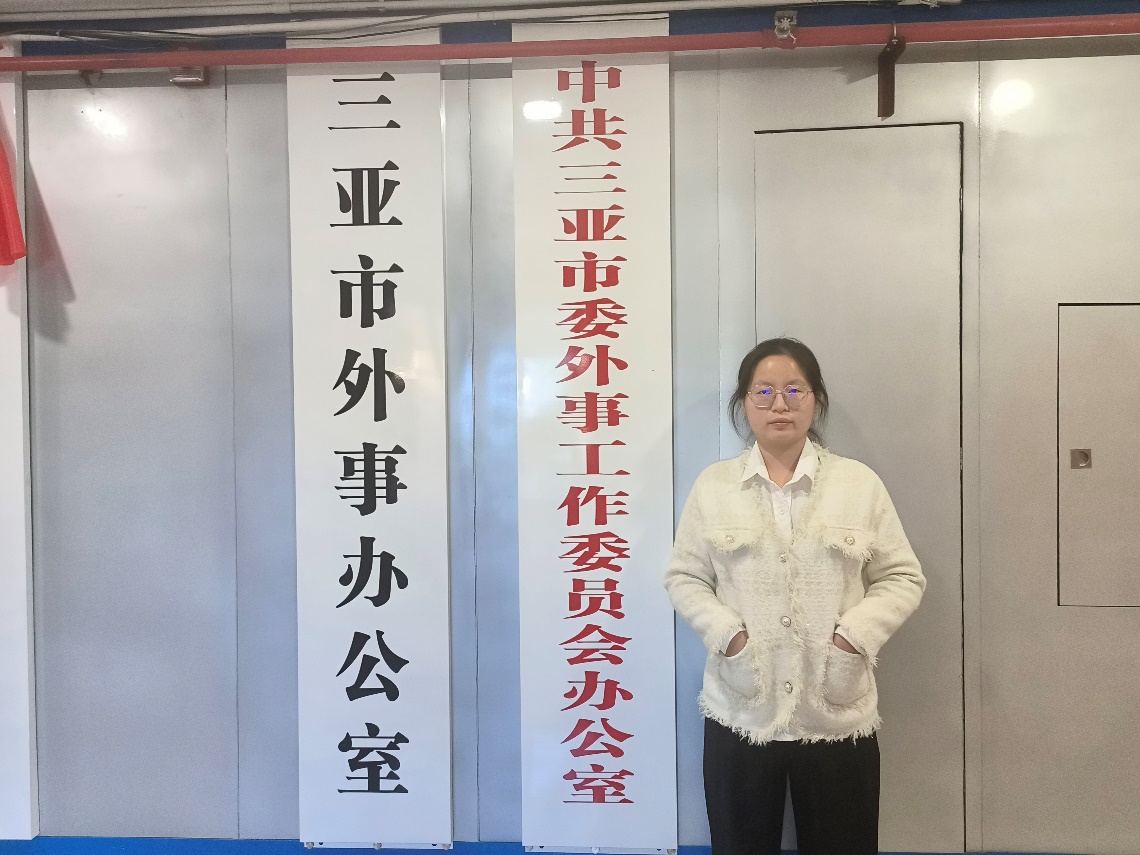 三亚市外事办公室
中共三亚市委外事工作委员会办公室